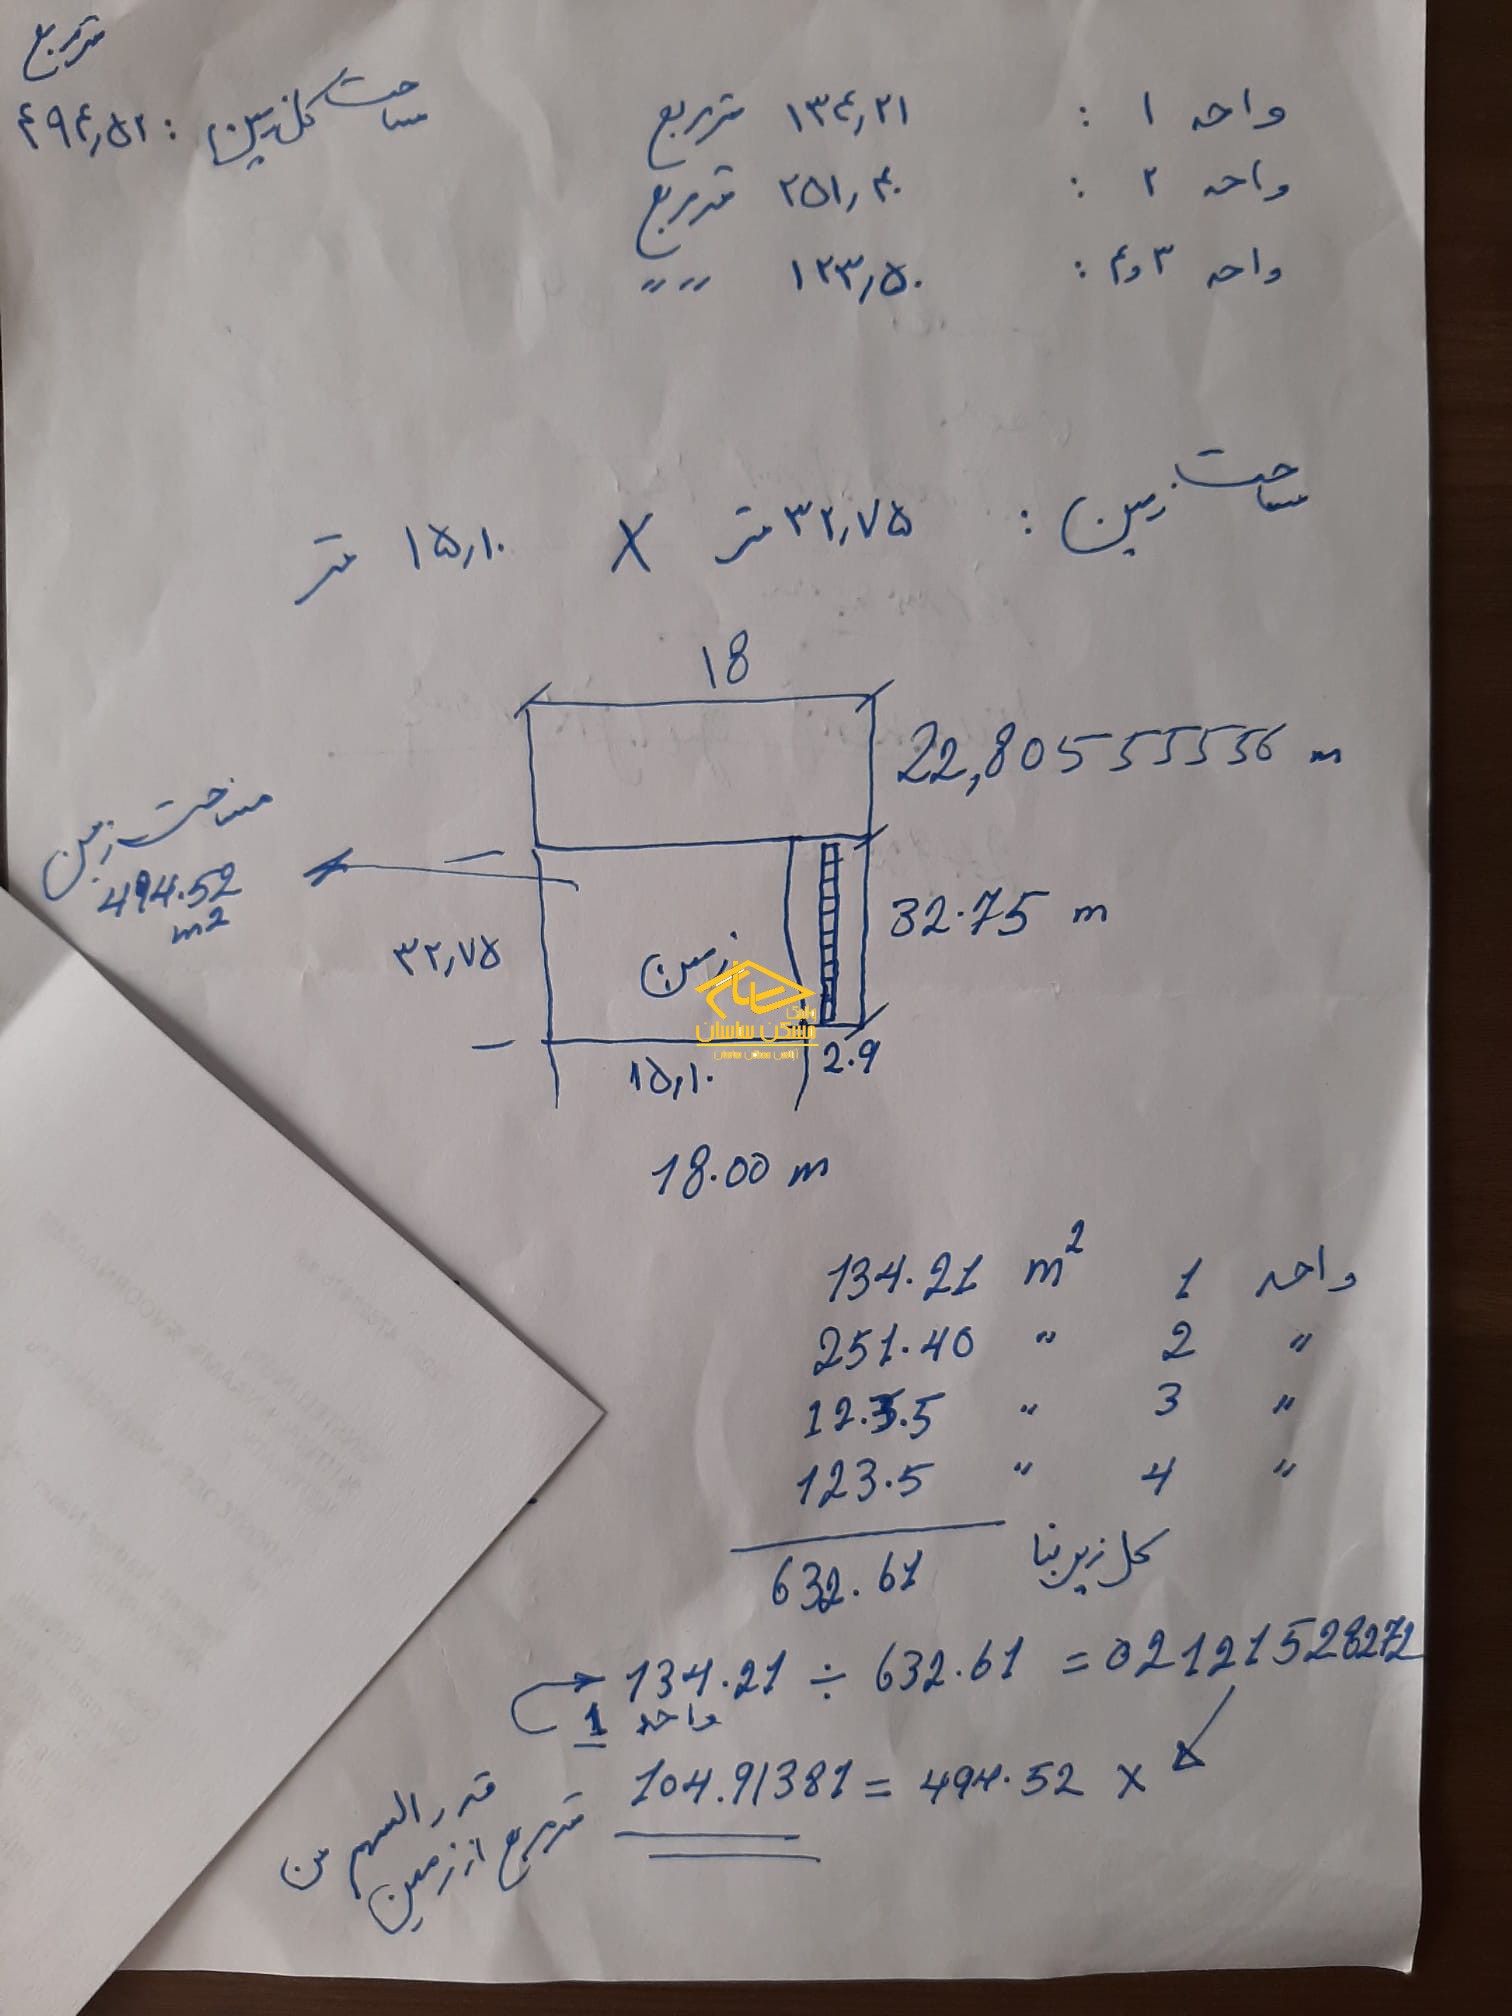 متر مربع
مساحت کل زمین : ۴۹۴٫۵۲
واحد ۱ : ۱۳۴٫۲۱ متر مربع
واحد ۲ : ۲۵۱٫۴۰ متر مربع
واحد ۳ و ۴ : ۱۲۳٫۵۰ " "
مساحت زمین : ۳۲٫۷۵ متر X ۱۵٫۱۰ متر
18
22,80555556 m
مساحت زمین
494.52
m2
32.75 m
۳۲٫۷۵
زمین
مسکن ساسان
۱۵٫۱۰
2.9
18.00 m
134.21 m2 1 واحد
251.40 " 2 "
123.5 " 3 "
123.5 " 4 "
632.61 کل زیر بنا
134.21 ÷ 632.61 = 02121528272
واحد 1
104.91381 = 494.52 ×
متر مربع از زمین
قدر السهم من